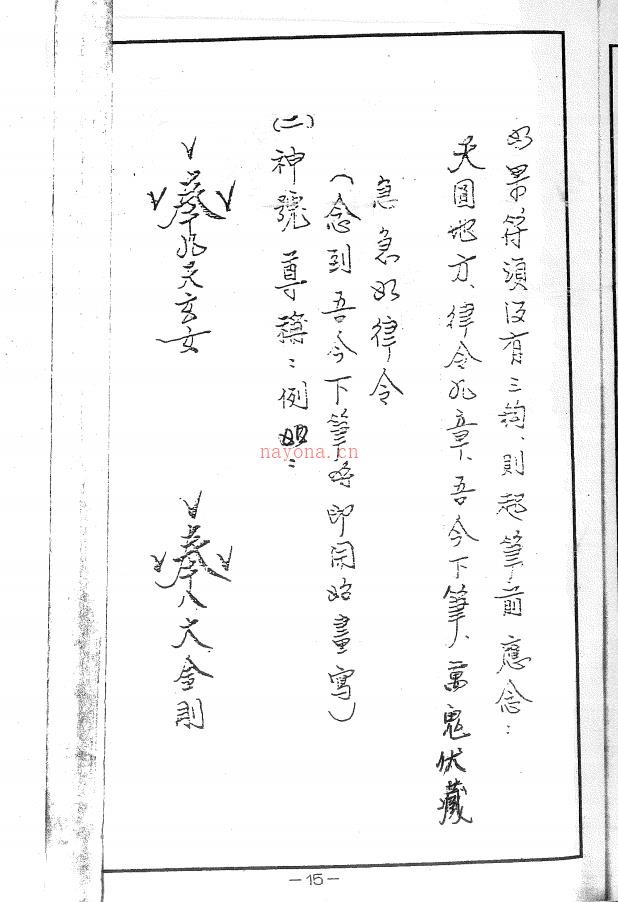 如果符頭沒有三鈎、則起筆前應念：
天圓地方、律令九章、吾今下筆、萬鬼伏藏
急急如律令
（念到吾今下筆時即開始畫寫）
(二)神號尊稱：例如：
奉九天玄女
奉八大金剛
nayona.cn
-15-